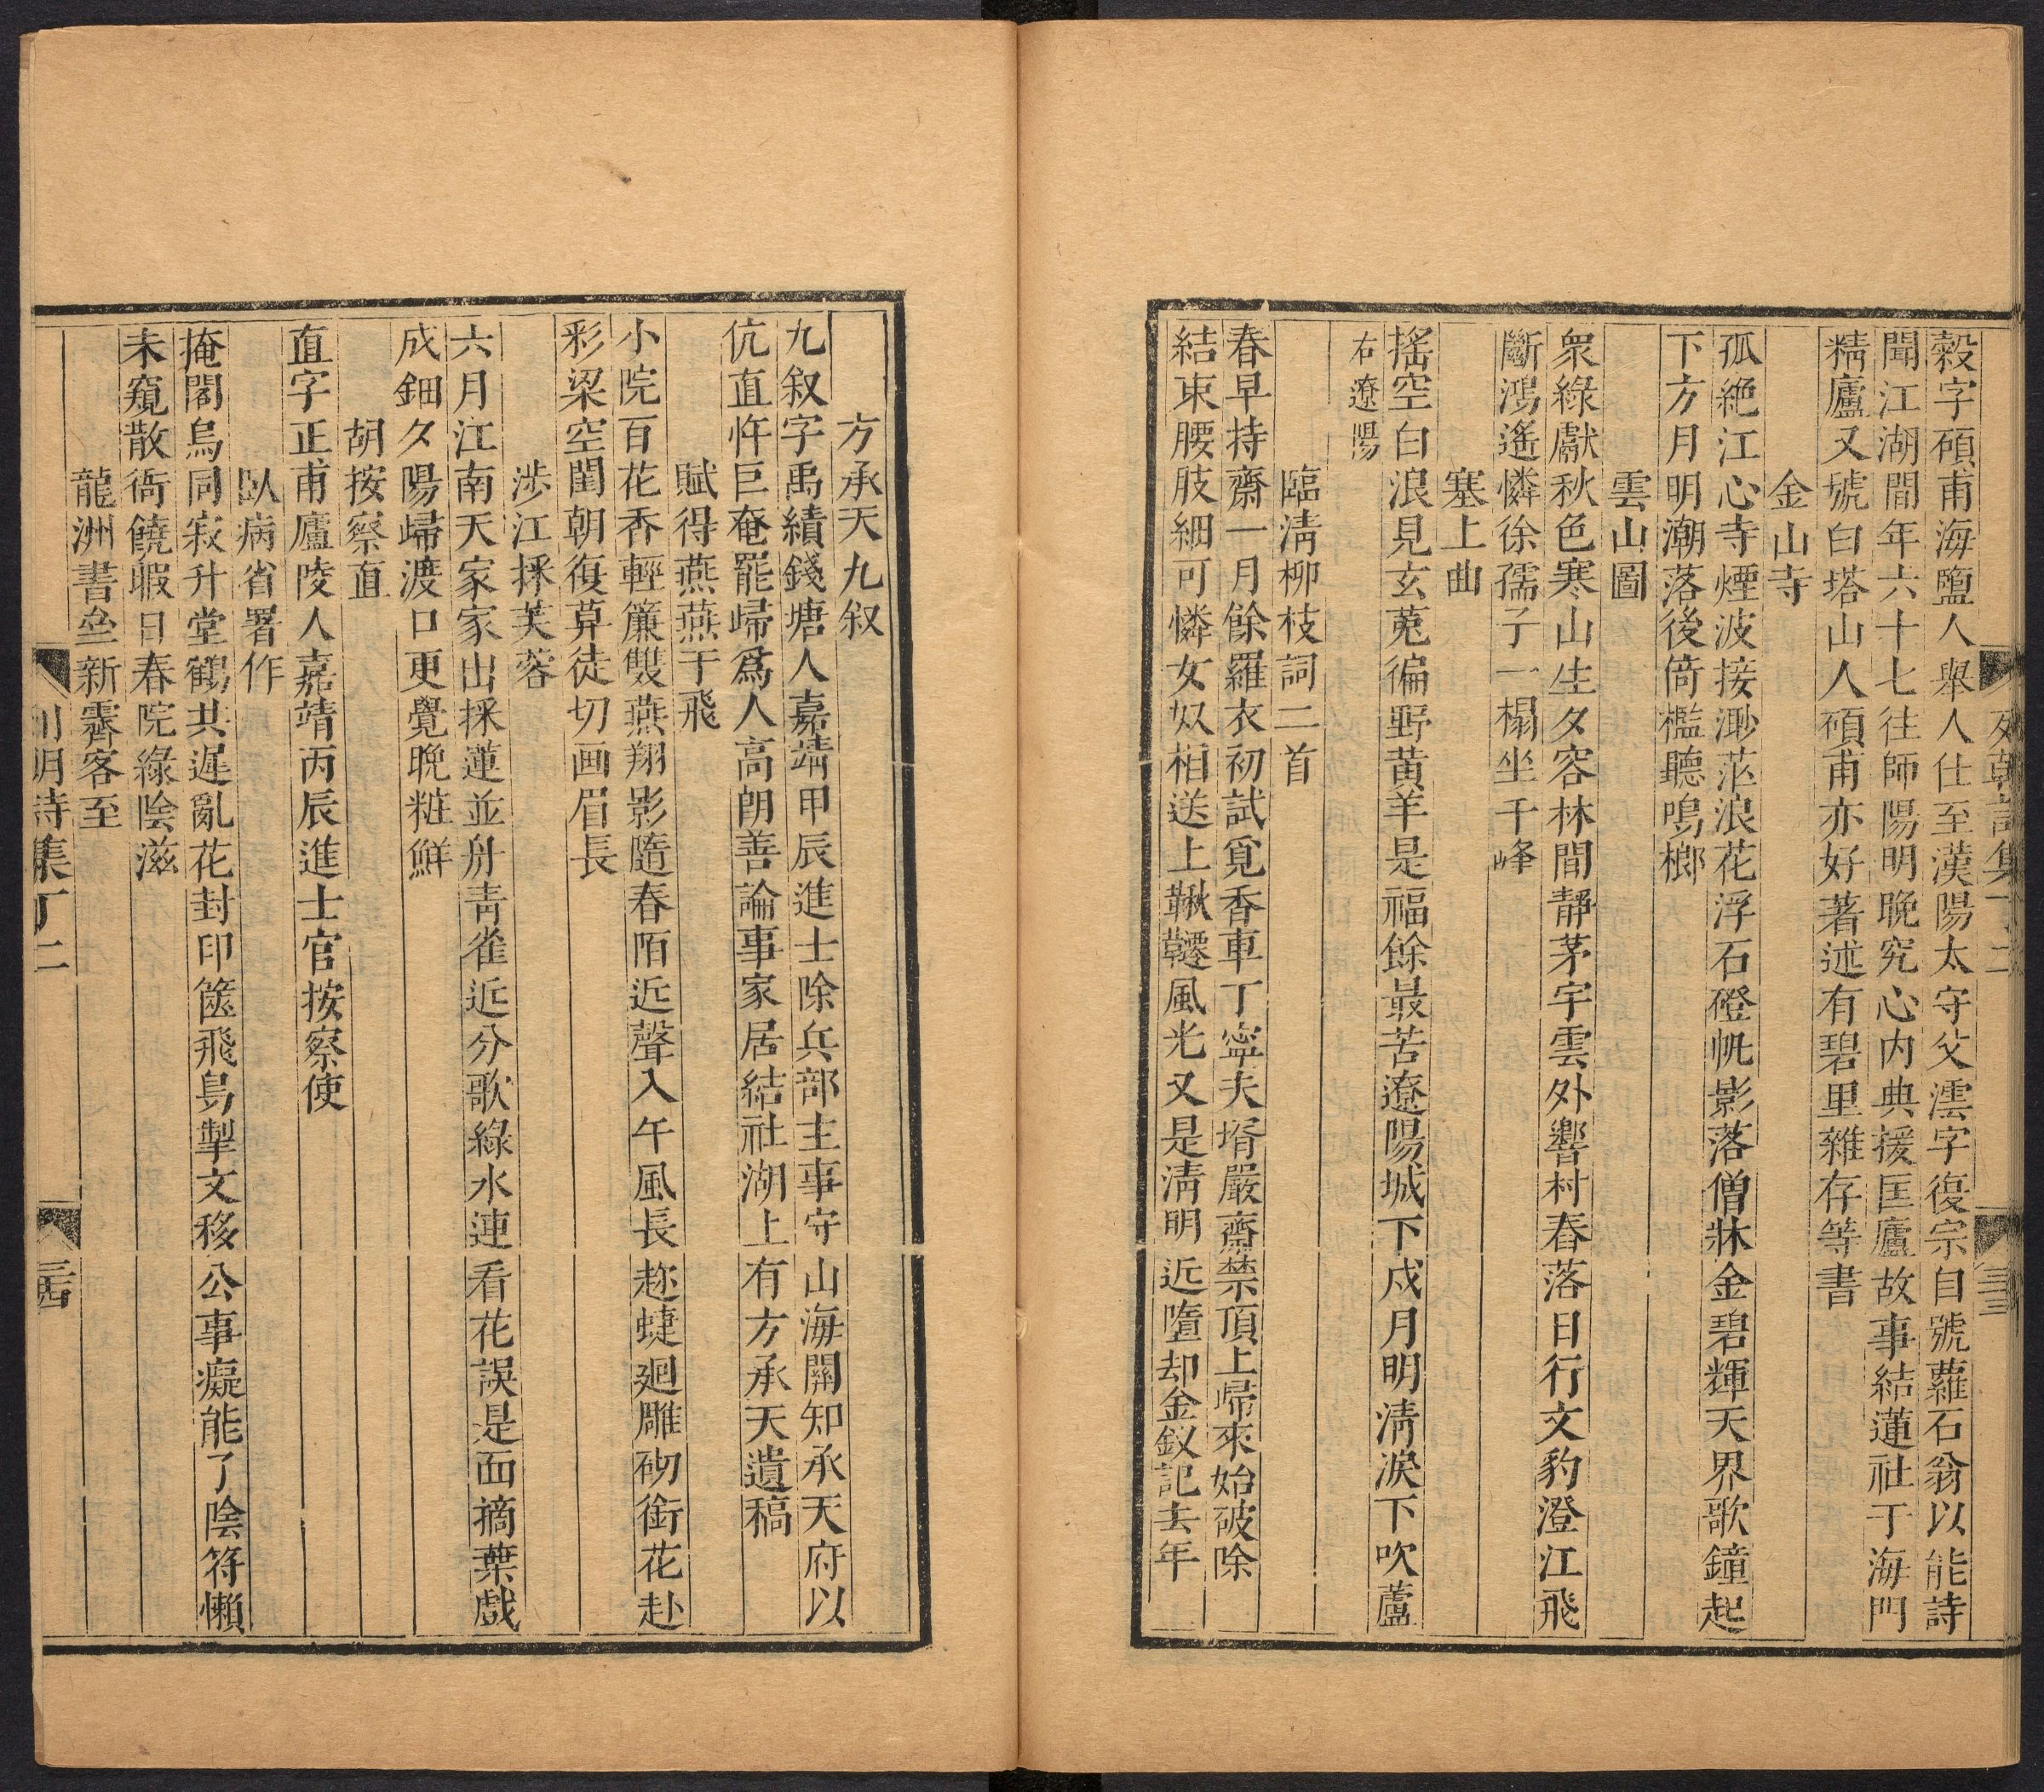 穀字碩甫海鹽人舉人仕至漢陽太守父澐字復宗自號蘿石翁以能詩
聞江湖間年六十七往師陽明晚究心内典援匡廬故事結蓮社于海門
精廬又號白塔山人碩甫亦好著述有碧里雜存等書
金山寺
孤絶江心寺煙波接渺茫浪花浮石磴帆影落僧牀金碧輝天界歌鐘起
下方月明潮落後倚檻聽鳴榔
雲山圖
衆綠獻秋色寒山生夕容林間靜茅宇雲外響村舂落日行文豹澄江飛
斷鴻遙憐徐孺子一榻坐千峰
塞上曲
搖空白浪見玄菟徧野黄羊是福餘最苦遼陽城下戍月明清淚下吹蘆
右遼陽
臨淸柳枝詞二首
春早持齋一月餘羅衣初試覓香車丁寧夫壻嚴齋禁頂上歸來始破除
結束腰肢細可憐女奴相送上鞦韆風光又是淸明近墮却金釵記去年
方承天九叙
九叙字禹績錢塘人嘉靖甲辰進士除兵部主事守山海關知承天府以
伉直忤巨奄罷歸爲人高朗善論事家居結社湖上有方承天遺稿
賦得燕燕于飛
小院百花香輕簾雙燕翔影隨春陌近聲入午風長趂蜨廻雕砌銜花赴
彩梁空閨朝復莫徒切画眉長
涉江採芙蓉
六月江南天家家出採蓮並舟靑雀近分歌綠水連看花誤是面摘葉戲
成鈿夕陽歸渡口更覺晚粧鮮
胡按察直
直字正甫廬陵人嘉靖丙辰進士官按察使
臥病省署作
掩閣烏同寂升堂鶴共遲亂花封印篋飛鳥掣文移公事癡能了陰符懶
未窺散衙饒暇日春院綠陰滋
龍洲書壘新霽客至
列朝詩集丁二
三四